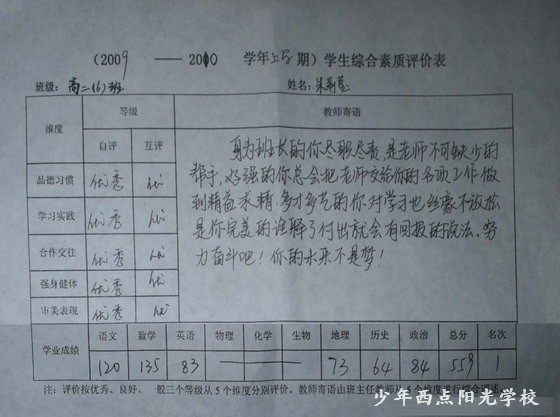 （2009 —— 2010 学年上学期）学生综合素质评价表
班级：高二(6)班 姓名：朱
维度 等级 教师寄语
自评 互评
品德习惯 优秀 优
学习实践 优秀 优
合作交往 优秀 优
强身健体 优秀 优
审美表现 优秀 优
身为班长的你尽职尽责，是老师不可缺少的
帮手，好强的你总会把老师交给你的各项工作做
到精益求精。多才多艺的你对学习也丝毫不放松
是你完美的诠释了付出就会有回报的说法，努
力奋斗吧！你的未来不是梦！
学业成绩 语文 数学 英语 物理 化学 生物 地理 历史 政治 总分 名次
120 135 83 —— 73 64 84 559 1
注：评价按优秀、良好、一般三个等级从5个维度分别评价。教师寄语由班主任教师从5个维度进行综合
少年西点阳光学校